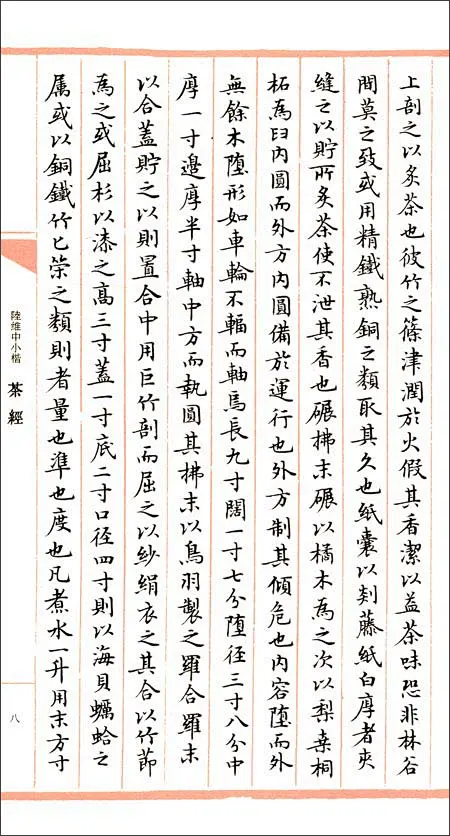 上剖之以炙茶也彼竹之篠津潤於火假其香潔以益茶味恐非林谷
間莫之致或用精鐵熟銅之類取其久也紙囊以剡藤紙白厚者夾
縫之以貯所炙茶使不泄其香也碾拂末碾以橘木為之次以梨桑桐
柘為臼內圓而外方內圓備於運行也外方制其傾危也內容墮而外
無餘木墮形如車輪不輻而軸焉長九寸闊一寸七分墮徑三寸八分中
厚一寸邊厚半寸軸中方而執圓其拂末以鳥羽製之羅合羅末
以合蓋貯之以則置合中用巨竹剖而屈之以紗絹衣之其合以竹節
為之或屈杉以漆之高三寸蓋一寸底二寸口徑四寸則以海貝蠣蛤之
屬或以銅鐵竹匕策之類則者量也準也度也凡煮水一升用末方寸
陸維中小楷 茶經
八